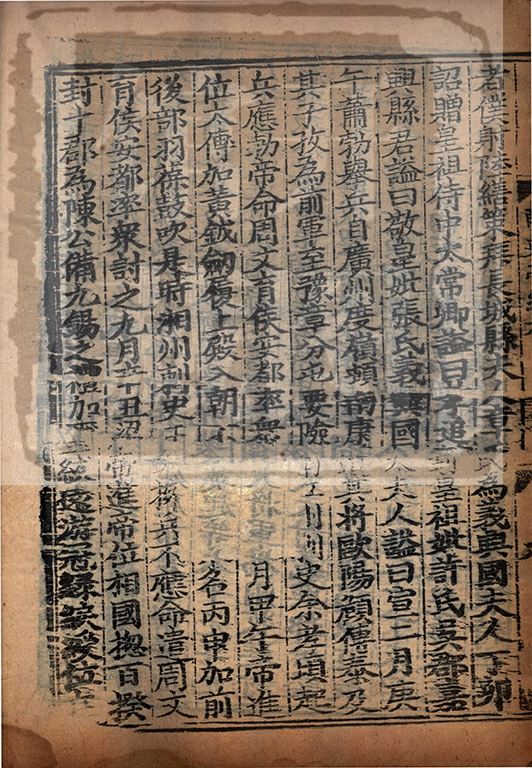 君僕射陸繕策拜長城縣夫人章氏為義興國夫人丁卯
詔贈皇祖侍中太常卿謚曰孝追封皇祖妣許氏吳郡嘉
興縣君謚曰敬皇妣張氏義興國太夫人謚曰宣二月庚
午蕭勃舉兵自廣州度嶺頓南康遣其將歐陽頠傅泰及
其子孜為前軍至豫章分屯要險南江州刺史余孝頃起
兵應勃帝命周文育侯安都率眾討平之 月甲午帝進
位太傅加黃鉞劒履上殿入朝不 名丙申加前
後部羽葆鼓吹是時湘州刺史王琳擁兵不應命遣周文
育侯安都率衆討之九月辛丑詔 帝進帝位相國揔百揆
封十郡為陳公備九錫之禮加 紱遠游冠綠綟綬位